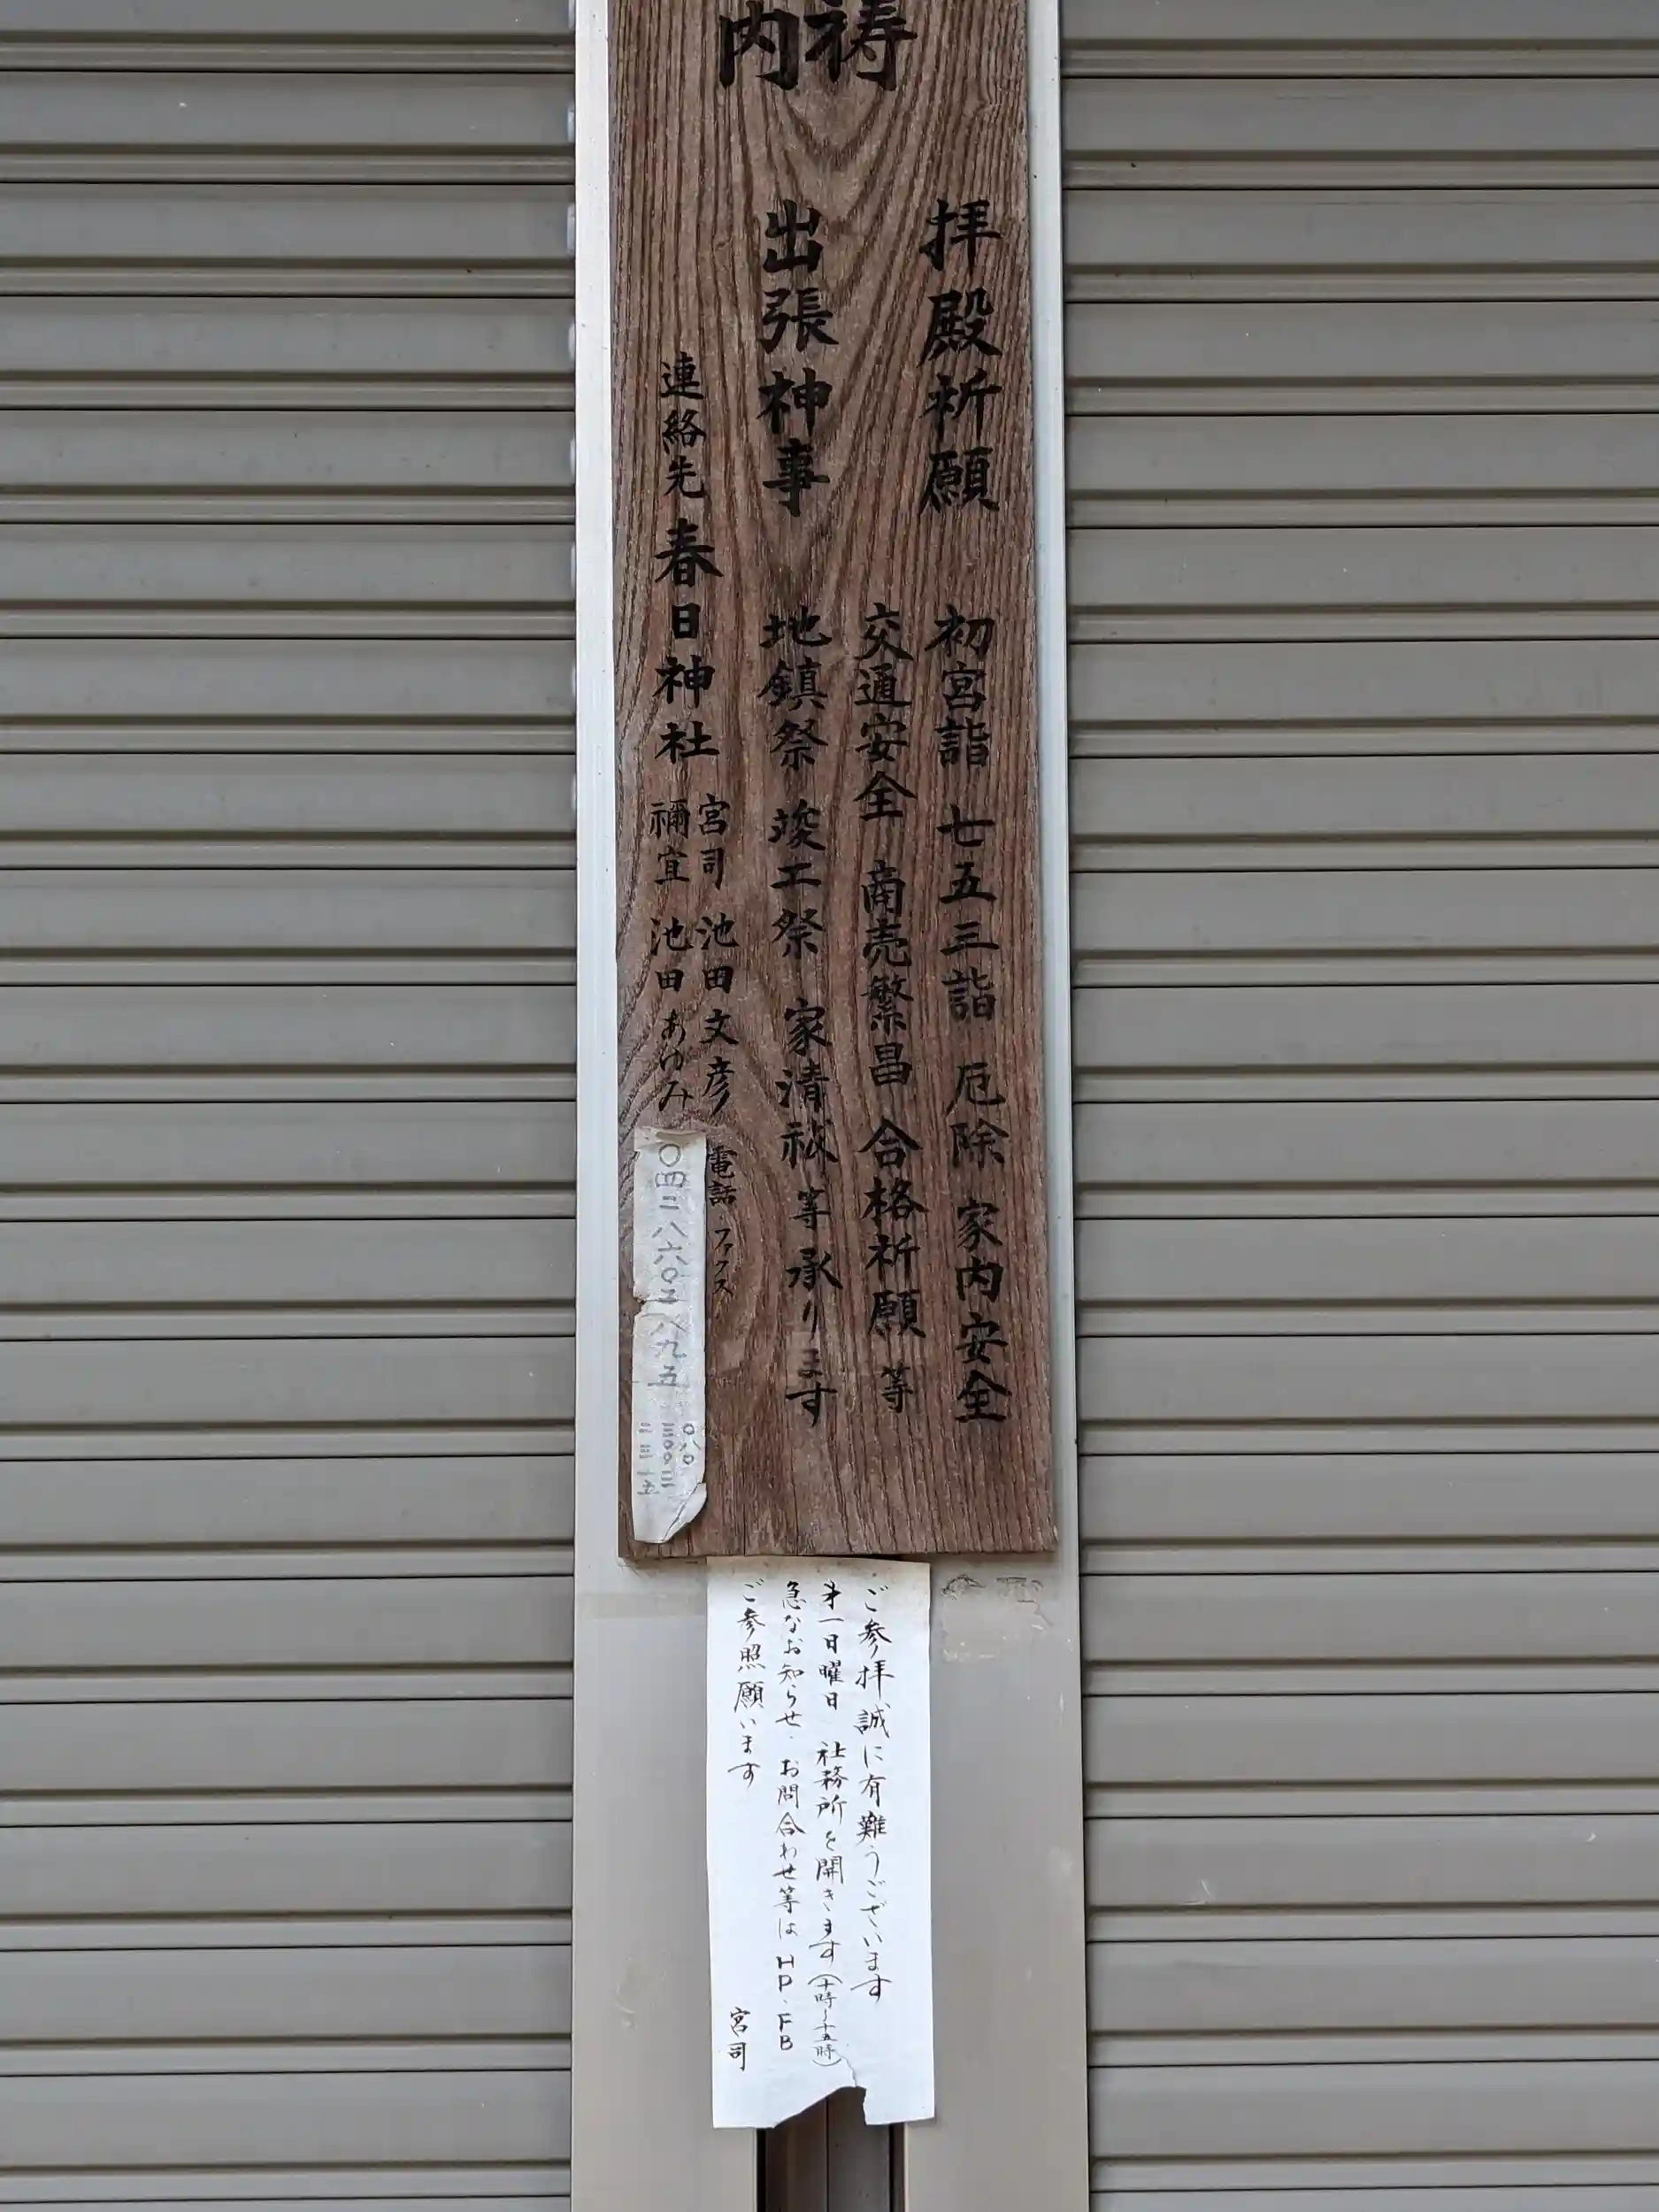 祷
内
拝殿祈願
初宮詣 七五三詣 厄除 家内安全
交通安全 商売繁昌 合格祈願 等
出張神事
地鎮祭 竣工祭 家清祓 等承ります
連絡先 春日神社
宮司 池田文彦
禰宜 池田あゆみ
電話 ファクス
〇四二八六〇二八九五
〇八〇
三〇〇三
二三一五
ご参拝 誠に有難うございます
第一日曜日 社務所を開きます(十時〜十五時)
急なお知らせ・お問合わせ等は HP・FB
ご参照願います
宮司